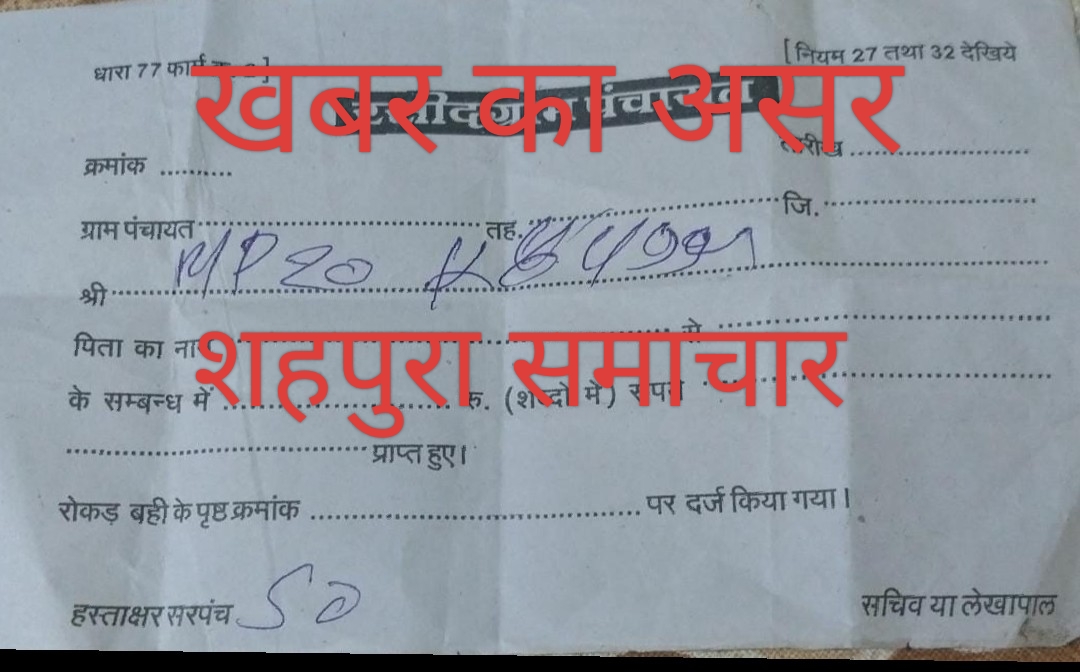 धारा 77 फार्म क. 2 ]
[ नियम 27 तथा 32 देखिये
खबर का असर
रसीद ग्राम पंचायत
क्रमांक ..........
तारीख ..............................
ग्राम पंचायत .............................. तह. .............................. जि. ..............................
MP 20
श्री ..............................
पिता का नाम .............................. से ..............................
शहपुरा समाचार
के सम्बन्ध में .............................. रु. (शब्दों में) रुपये ..............................
.............................. प्राप्त हुए।
रोकड़ बही के पृष्ठ क्रमांक .............................. पर दर्ज किया गया।
हस्ताक्षर सरपंच 50
सचिव या लेखापाल